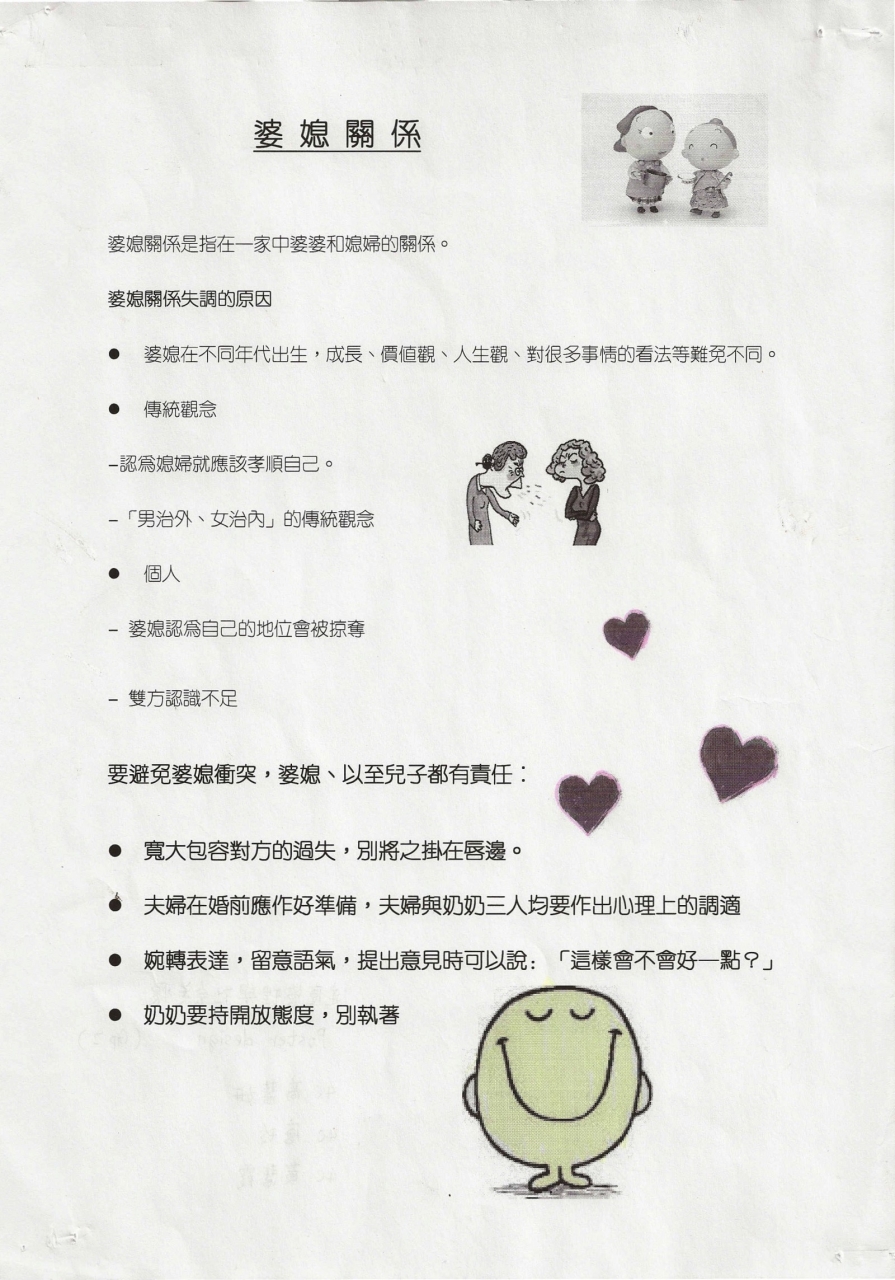 婆媳關係
婆媳關係是指在一家中婆婆和媳婦的關係。
婆媳關係失調的原因
● 婆媳在不同年代出生，成長、價值觀、人生觀、對很多事情的看法等難免不同。
● 傳統觀念
–認為媳婦就應該孝順自己。
–「男治外、女治內」的傳統觀念
● 個人
– 婆媳認為自己的地位會被掠奪
– 雙方認識不足
要避免婆媳衝突，婆媳、以至兒子都有責任：
● 寬大包容對方的過失，別將之掛在唇邊。
● 夫婦在婚前應作好準備，夫婦與奶奶三人均要作出心理上的調適
● 婉轉表達，留意語氣，提出意見時可以說：「這樣會不會好一點？」
● 奶奶要持開放態度，別執著